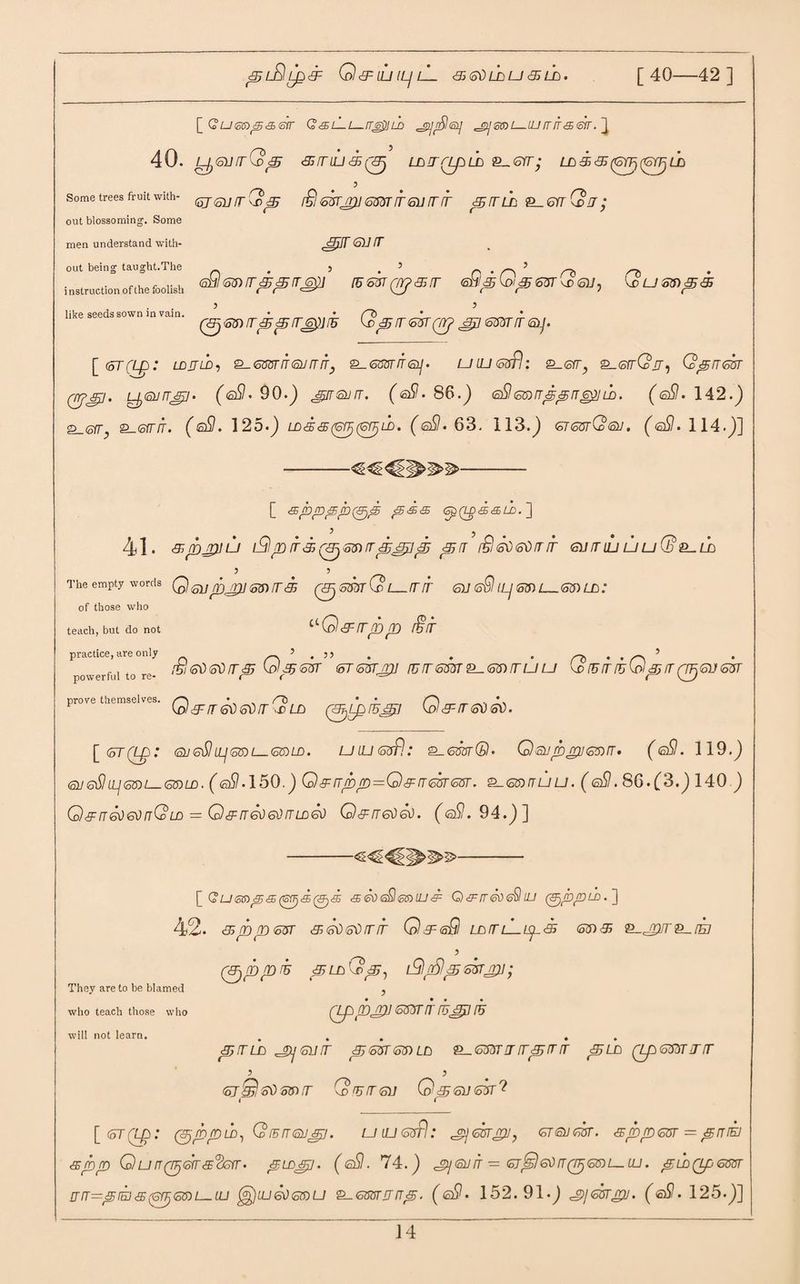 தமிழ்ச் செய்யுட் கலம்பகம். [ 40—42 ]
[ பேதைகள் கேட்டாலும் அறிவு அடையார்கள். ]
40. பூவாதே காய்க்கு' மரமும் உள; மக்களுளும்
Some trees fruit with-
out blossoming. Some
men understand with-
out being taught.The
instruction of the foolish
like seeds sown in vain.
ஏவாதே நின்றுணர்வார் தாம் உளரே;
தூவா
விரைத்தாலு' நன்றாகா' வித்தெனவே, பேதைக்'
குரைத்தாலுந் தோன்றா துணர்வு.
[ எழு: மரம், உணர்வார், உணர்வு. பயனி: உள, உளரே, தோன்
றாது. பூவாது. (வி. 90.) தூவா. (வி. 86.) விரைத்தாலும். (வி. 142.)
உள, உளர். (வி. 125.) மக்களுளும். (வி. 63. 113.) எனவே. (வி. 114.)]
[ கற்றதற்குத் தக்க ஒழுக்கம். ]
41. கற்றுப் பிறர்க்குரைத்துத் தா' நில்லார் வாய்ப்படுஉம்
The empty words
of those who
teach, but do not
practice, are only
powerful to re-
prove themselves.
வெற்றுரைக் குண்டோர் வலியுடைமை:
“சொற்ற நீர்
நில்லாத தென்” என்று நாண்உறைப்ப நேர்ந்தொருவன்
சொல்லாமே குழ்ந்து சொலல்.
[ எழு: வலியுடைமை. பயனி: உண்டு. வெற்றுரை. (வி. 119.)
வலியுடைமை. (வி.150.) சொற்ற=சொன்ன. உறைப்ப. (வி.86.(3.) 140.)
சொல்லாமே = சொல்லாமல் சொலல். (வி. 94.) ]
[ பேதைகளுக்குக் கலவியைச் சொல்லிய குற்றம். ]
42. கற்றன கல்லார் செவி மாட்டிக் கை உறூஉங்
They are to be blamed
who teach those who
will not learn.
குற்றந் தமதே, பிறிதன்று;
முற்றுணர்ந்து
தாம் அவர் தன்மை உணராதார் தம் முணரா
ஏதிலரை நோவ தெவன்?
[ எழு: குற்றம், நோவது. பயனி: அன்று, எவன். கற்றன = தாங்
கற்ற பொருள்களை. தமது. (வி. 74.) அவர் = ஏதிலாருடைய. தம்முண
ரா=தங்களுடைய இயல்பை உணராத. (வி. 152. 91.) அன்று. (வி. 125.)]
14